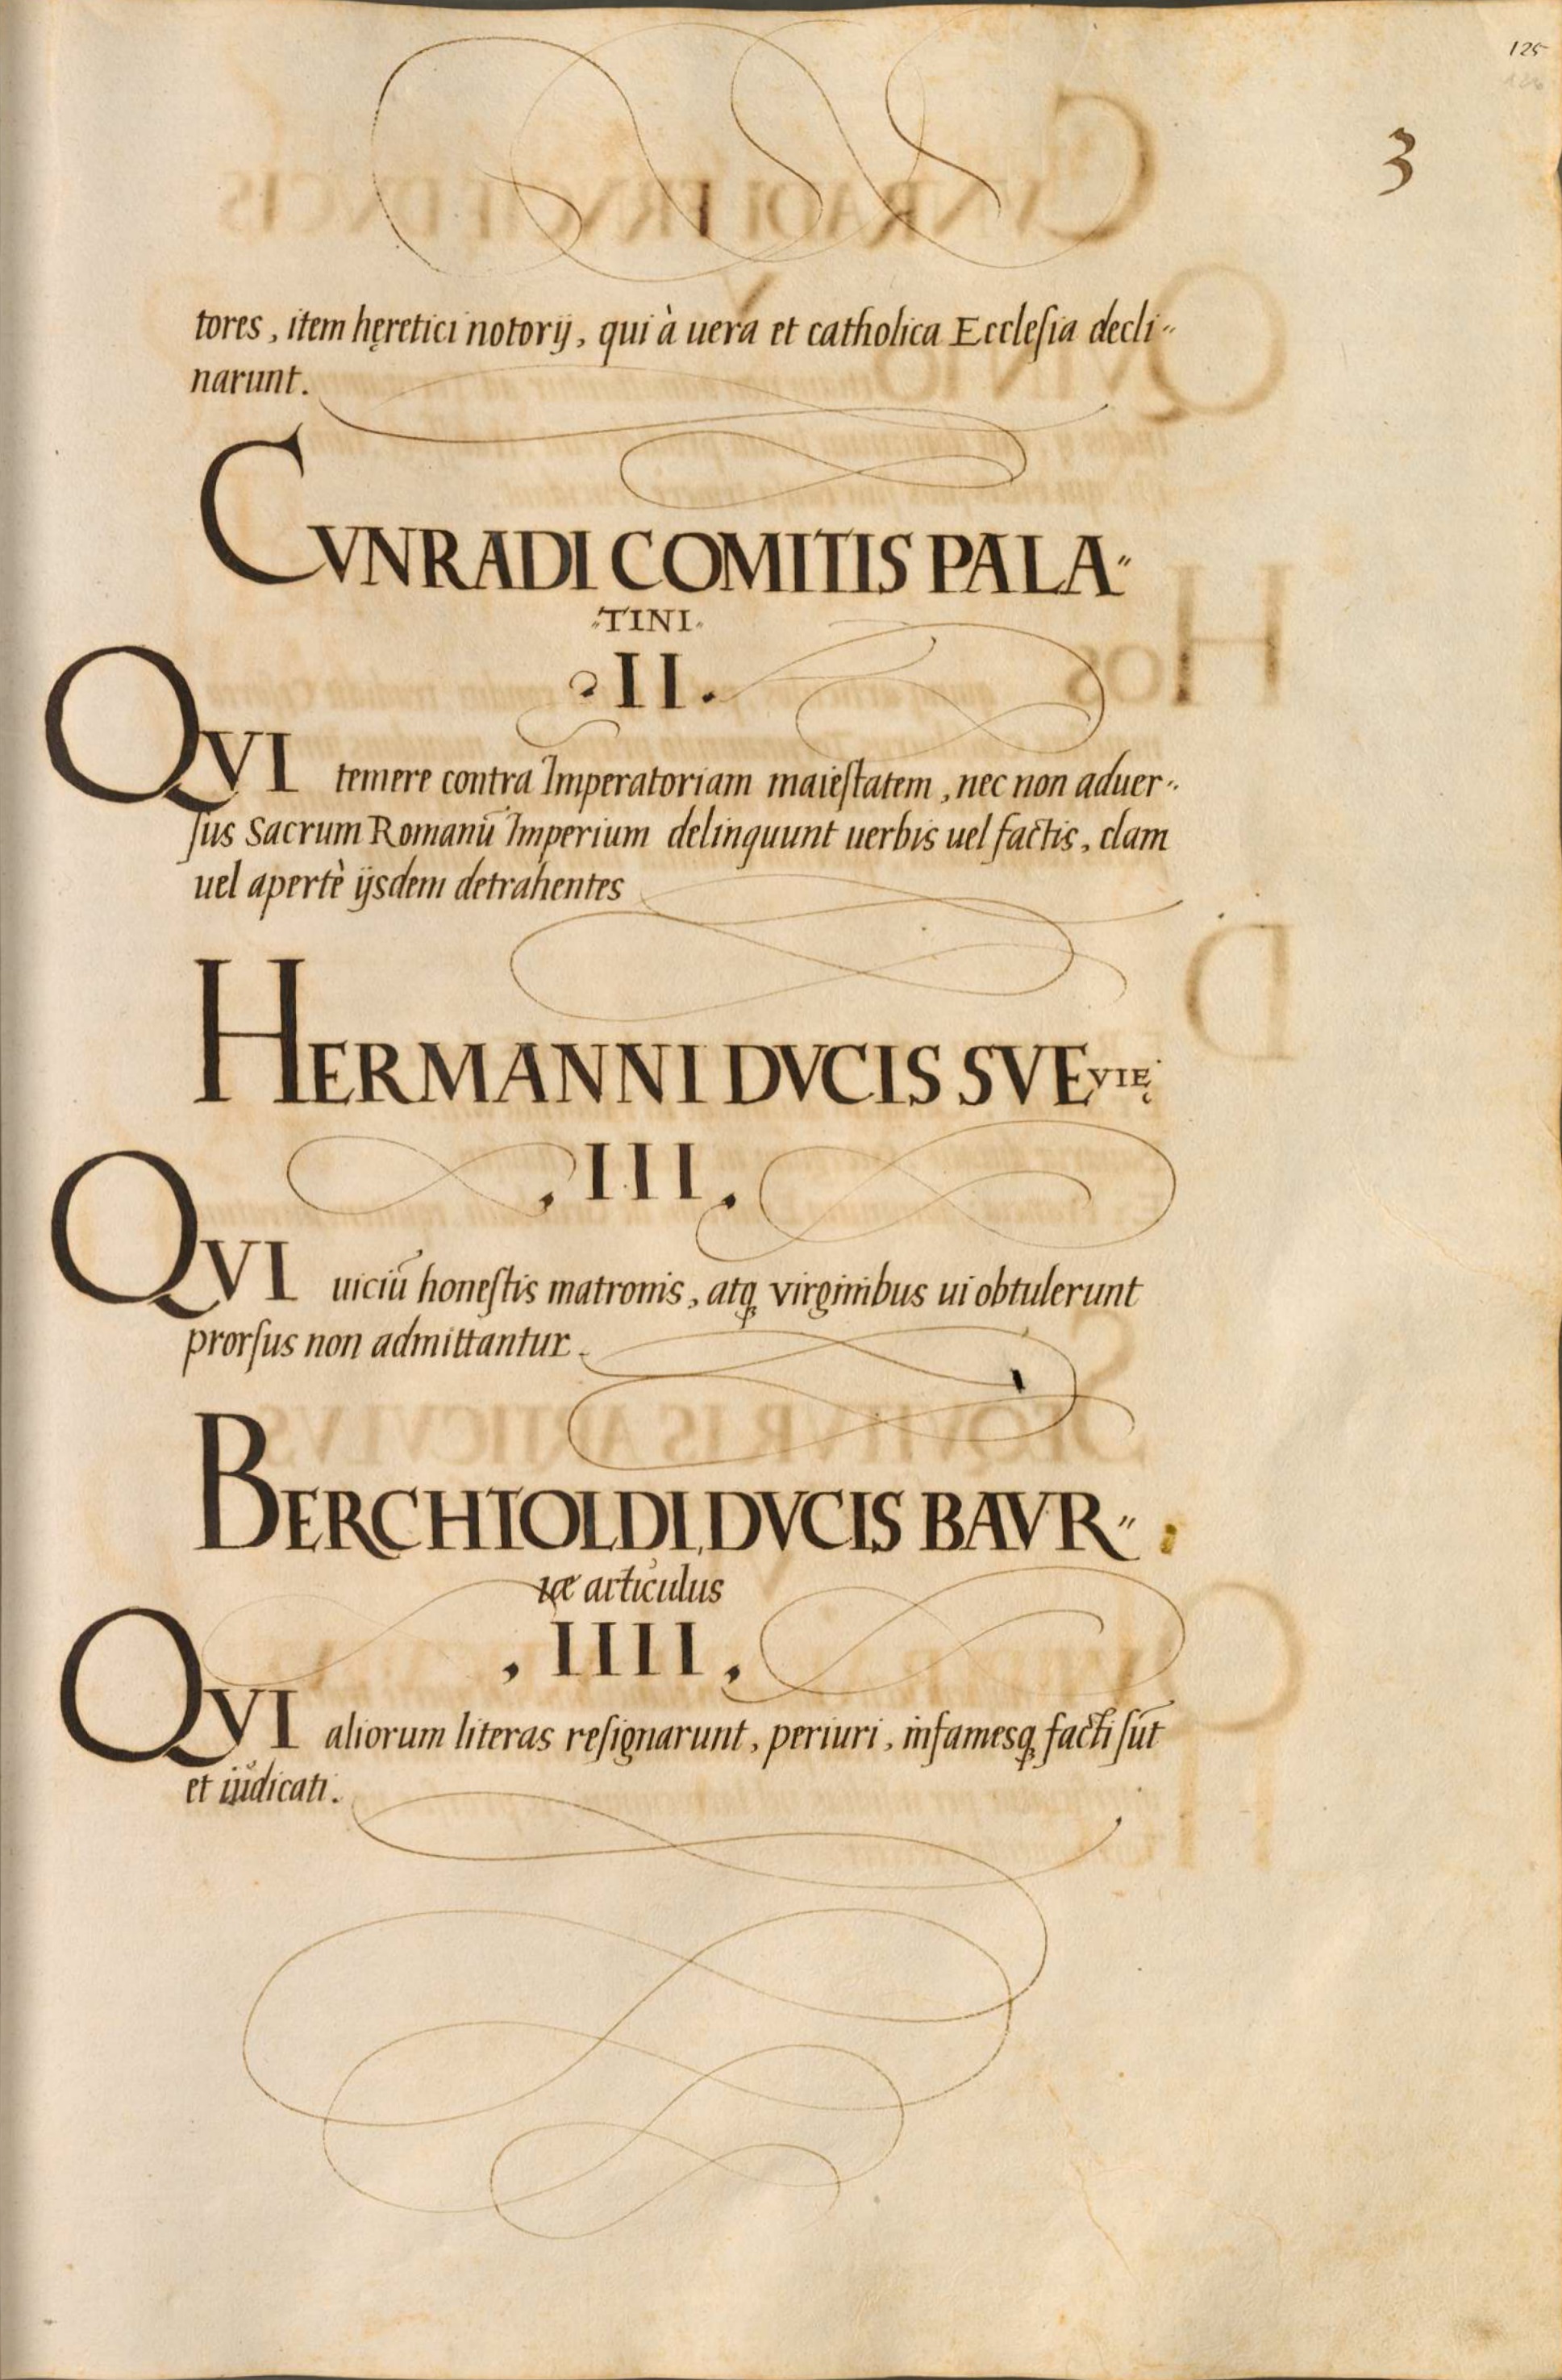 125
3
tores, item hęretici notorij, qui à uera et catholica Ecclesia decli"
narunt.
CVNRADI COMITIS PALA"
TINI.
II.
QVI temere contra Imperatoriam maiestatem, nec non aduer"
sus Sacrum Romanū Imperium delinquunt uerbis uel factis, clam
uel apertè ijsdem detrahentes
HERMANNI DVCIS SVEVIĘ
, III,
QVI uiciū honestis matronis, atq; virginibus ui obtulerunt
prorsus non admittantur.
BERCHTOLDI, DVCIS BAVR"
iæ articulus
, IIII,
QVI aliorum literas resignarunt, periuri, infamesq; facti sūt
et iudicati.